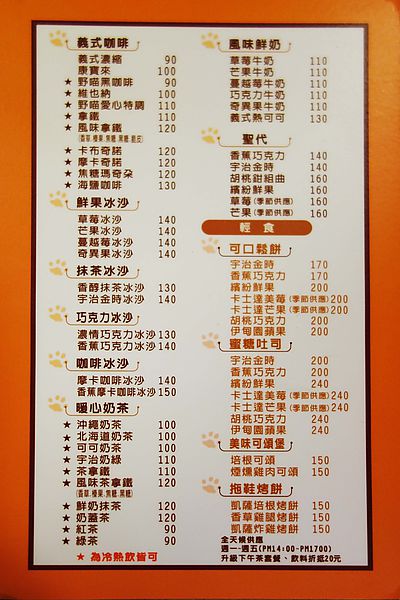 義式咖啡
義式濃縮 90
康寶來 100
★ 野喵黑咖啡 90
★ 維也納 100
★ 野喵愛心特調 110
★ 拿鐵 110
★ 風味拿鐵 120
(香草.榛果.焦糖.黑糖.脆皮)
★ 卡布奇諾 120
★ 摩卡奇諾 120
★ 焦糖瑪奇朵 120
★ 海鹽咖啡 130
鮮果冰沙
草莓冰沙 140
芒果冰沙 140
蔓越莓冰沙 140
奇異果冰沙 140
抹茶冰沙
香醇抹茶冰沙 130
宇治金時冰沙 140
巧克力冰沙
濃情巧克力冰沙 130
香蕉巧克力冰沙 140
咖啡冰沙
摩卡咖啡冰沙 140
香蕉摩卡咖啡冰沙 150
暖心奶茶
★ 沖繩奶茶 120
★ 北海道奶茶 100
★ 可可奶茶 100
★ 宇治奶綠 110
★ 茶拿鐵 110
★ 風味茶拿鐵 120
(香草.榛果.焦糖.黑糖)
★ 鮮奶抹茶 120
★ 奶蓋茶 120
★ 紅茶 90
★ 綠茶 90
★ 為冷熱飲皆可
風味鮮奶
草莓牛奶 110
芒果牛奶 110
蔓越莓牛奶 110
巧克力牛奶 110
奇異果牛奶 110
義式熱可可 130
聖代
香蕉巧克力 140
宇治金時 140
胡桃鉗組曲 160
繽紛鮮果 160
草莓(季節供應) 160
芒果(季節供應) 160
輕食
可口鬆餅
宇治金時 170
香蕉巧克力 170
繽紛鮮果 200
卡士達美莓(季節供應) 200
卡士達芒果(季節供應) 200
胡桃巧克力 200
伊甸園蘋果 200
蜜糖吐司
宇治金時 200
香蕉巧克力 200
繽紛鮮果 240
卡士達美莓(季節供應) 240
卡士達芒果(季節供應) 240
胡桃巧克力 240
伊甸園蘋果 240
美味可頌堡
培根可頌 150
煙燻雞肉可頌 150
拖鞋烤餅
凱薩培根烤餅 150
香草雞腿烤餅 150
凱薩炸雞烤餅 150
全天候供應
週一~週五(PM14:00-PM1700)
升級下午茶套餐、飲料折抵20元